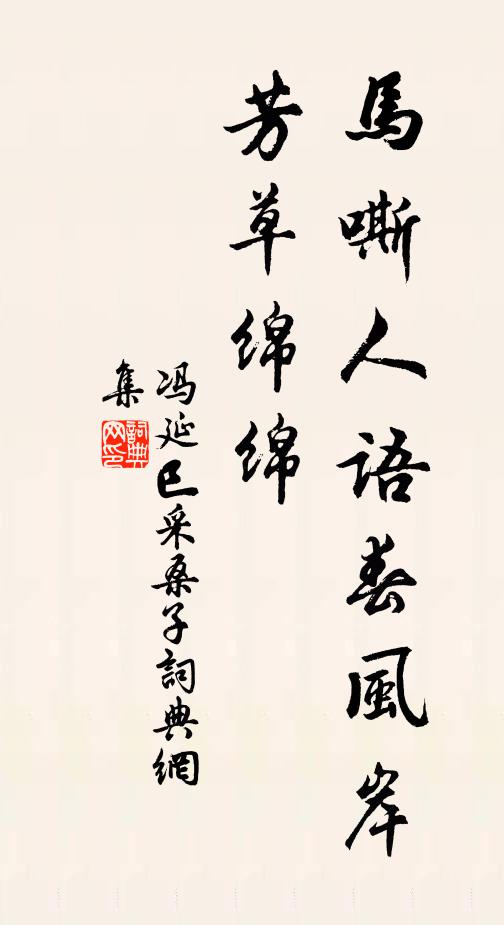 馬嘶人語春風岸
芳草綿綿
冯延巳采桑子詞典網
集
詞典
网印